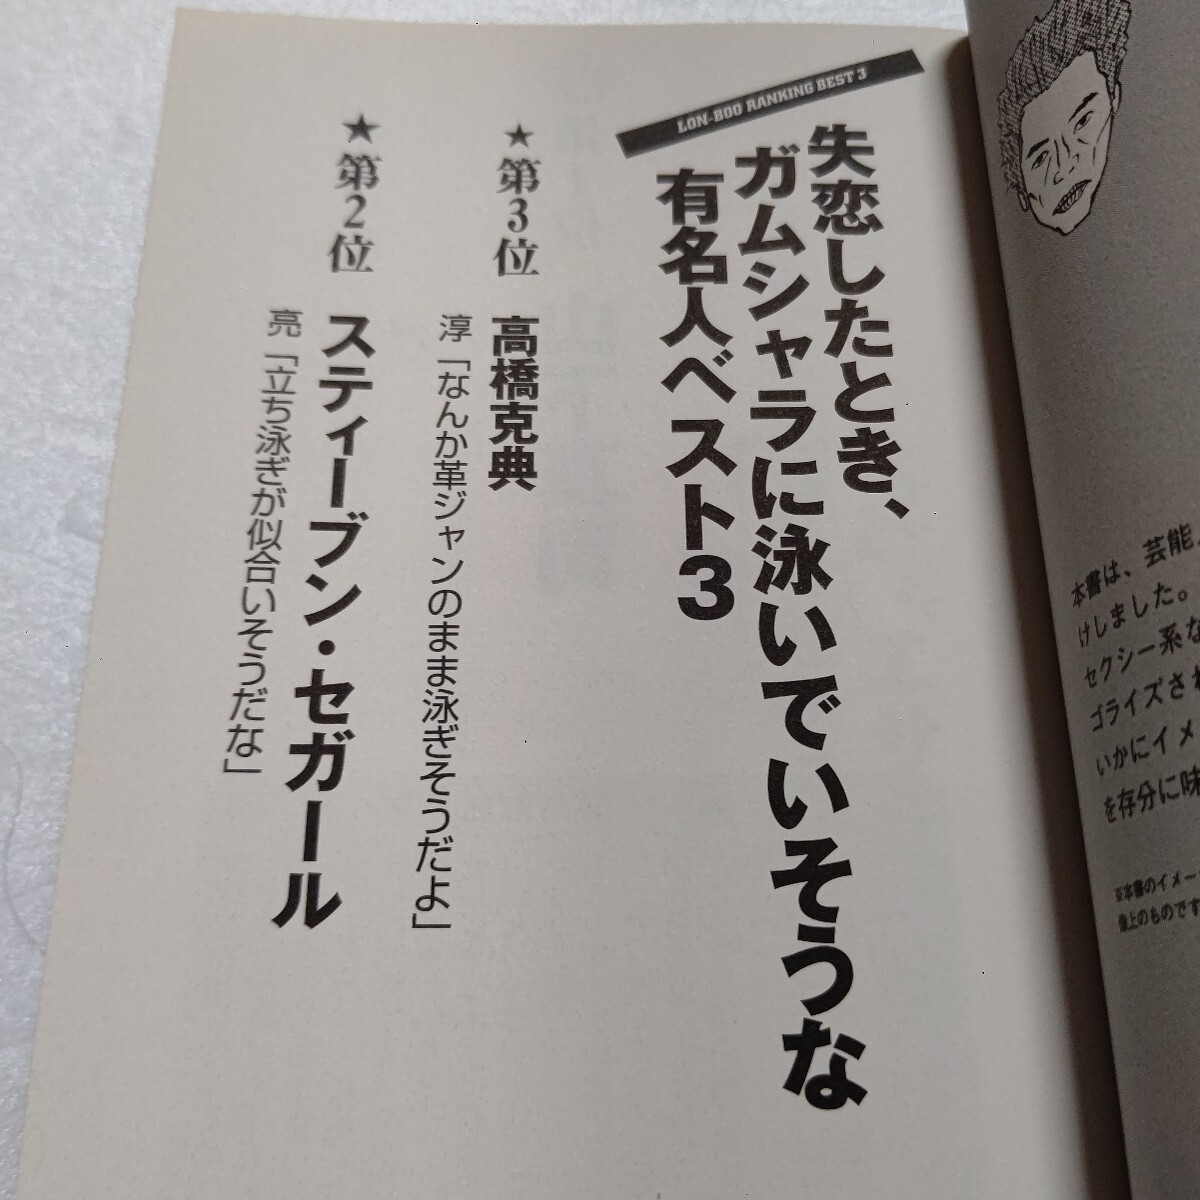 本書は、芸能
けしました。
セクシー系な
ゴライズされ
いかにイメ
を存分に味
※本書のイメー
像上のものです
LON-BOO RANKING BEST 3
失恋したとき、
ガムシャラに泳いでいそうな
有名人ベスト3
★第3位 高橋克典
淳「なんか革ジャンのまま泳ぎそうだよ」
★第2位 スティーブン・セガール
亮「立ち泳ぎが似合いそうだな」